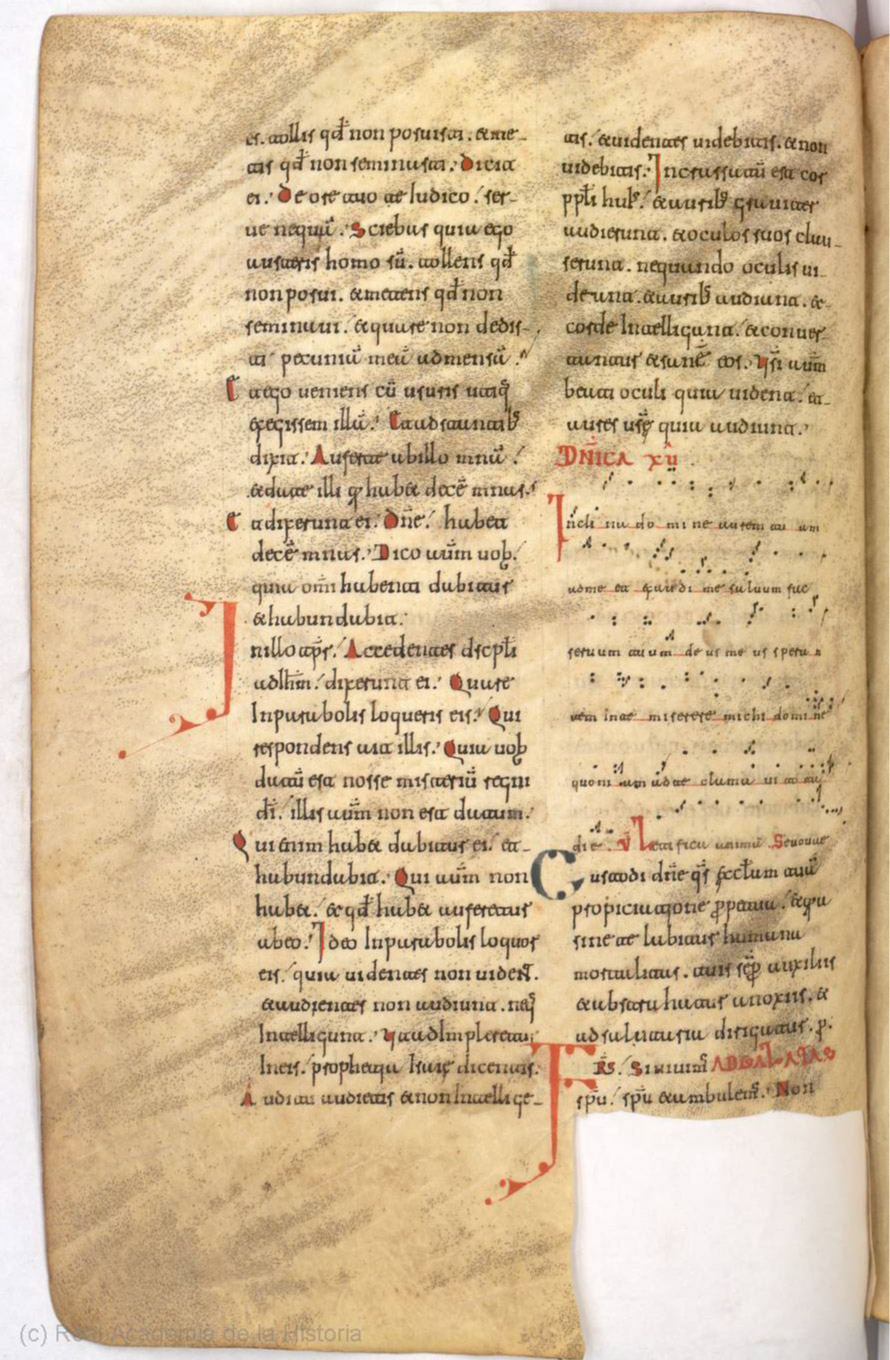 es. tollis qđ non posuisti. & me-
tis qđ non seminasti. Dicit
ei. De ore tuo te iudico. ser-
ue nequā. Sciebas quia ego
austeris homo sū. tollens qđ
non posui. & metens qđ non
seminaui. & quare non dedis-
ti pecuniā meā ad mensā.
Et ego ueniens cū usuris utiq̄
exegissem illā. Et adstantib
dixit. Auferte ab illo mnā.
& date illi q̄ habet decē mnas.
Et dixerunt ei. Dn̄e. habet
decē mnas. Dico aūm uob.
quia om̄i habenti dabitur
& habundabit.
In illo tp̄rs. Accedentes discpłi
ad ihm̄. dixerunt ei. Quare
In parabolis loqueris eis. Qui
respondens ait illis. Quia uob
datū est nosse misteriū regni
dī. illis aūm non est datum.
Qui enim habet dabitur ei. et
habundabit. Qui aūm non
habet. & qđ habet auferetur
ab eo. Ideo In parabolis loquor
eis. quia uidentes non uidēt.
& audientes non audiunt. neq̄
Intelligunt. Ut adImpleretur
In eis. prophetia Isaie dicentis.
Auditu audietis & non Intellige-
tis. & uidentes uidebitis. & non
uidebitis. Incrassatū est cor
ppłi huī. & aurib grauiter
audierunt. & oculos suos clau-
serunt. nequando oculis ui-
deant. & aurib audiant. &
corde Intelligant. & conuer-
tantur & sanē eos. Ur̄i aūm
beati oculi quia uident. et
aures us̄e quia audiunt.
DN̄ICA XV
Inclina domine aurem tuam
ad me et exaudi me saluum fac
seruum tuum deus meus spera n
tem In te miserere michi domine
quoniam ad te clamaui tota
die. V̄ Letifica animā Seuouae
Custodi dn̄e q̄s ecclam tuā
propiciatione p̄petua. & q̄a
sine te labitur humana
mortalitas. tuis sēp auxiliis
& abstrahatur a noxiis. &
ad salutaria dirigatur. p.
FRS. AD GALATAS
sp̄u. sp̄u & ambulem̄. Non
(c) Real Academia de la Historia